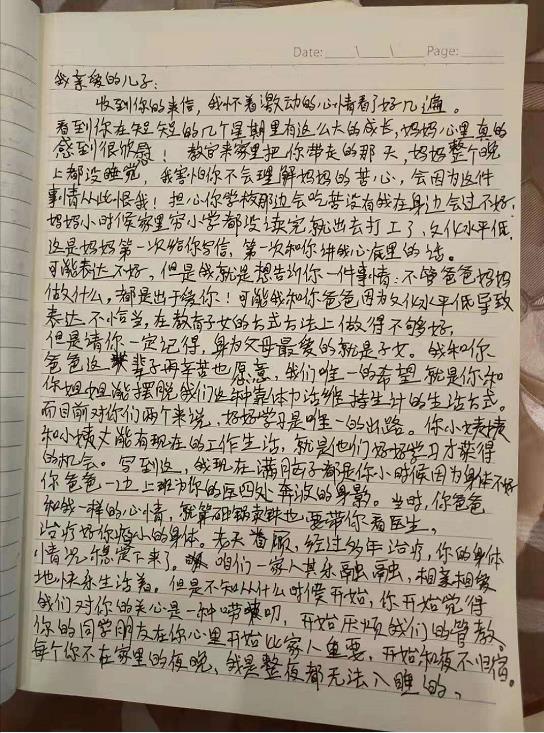 Date: \ \ Page:
我亲爱的儿子:
收到你的来信,我怀着激动的心情看了好几遍。
看到你在短短的几个星期里有这么大的成长,妈妈心里真的
感到很欣慰!教官来家里把你带走的那天,妈妈整个晚
上都没睡觉,我害怕你不会理解妈妈的苦心,会因为这件
事情从此恨我!担心你学校那边会吃苦没有我在身边会过不好.
妈妈小时侯家里穷小学都没读完就出去打工了,文化水平低.
这是妈妈第一次给你写信,第一次和你讲我心底里的话。
可能表达不好,但是我就是想告诉你一件事情:不管爸爸妈妈
做什么,都是出于爱你!可能我和你爸爸因为文化水平低导致
表达不恰当,在教育子女的方式方法上做得不够好,
但是请你一定记得,身为父母最爱的就是子女。我和你
爸爸这辈子再辛苦也愿意,我们唯一的希望就是你和
你姐姐能摆脱我们这种靠体力活维持生计的生活方式。
而目前对你们两个来说,好好学习是唯一的出路。你小姨姨
和小姨丈能有现在的工作生活,就是他们好好学习才获得
的机会。写到这,我现在满脑子都是你小时候因为身体不好
你爸爸一边上班为你的医四处奔波的身影。当时,你爸爸
和我一样的心情,就算砸锅卖铁也要带你看医生,
治疗好你瘦小的身体。老天眷顾,经过多年治疗,你的身体
情况稳定下来了。咱们一家人其乐融融,相亲相爱
地快乐生活着。但是不知从什么时侯开始,你开始觉得
我们对你的关心是一种唠叨,开始厌烦我们的管教。
你的同学朋友在你心里开始比家人重要,开始知夜不归宿。
每个你不在家里的夜晚,我是整夜都无法入睡的,